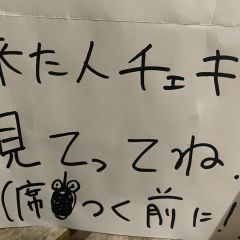 来た人チェキ
見てってね!
(席つく前に!